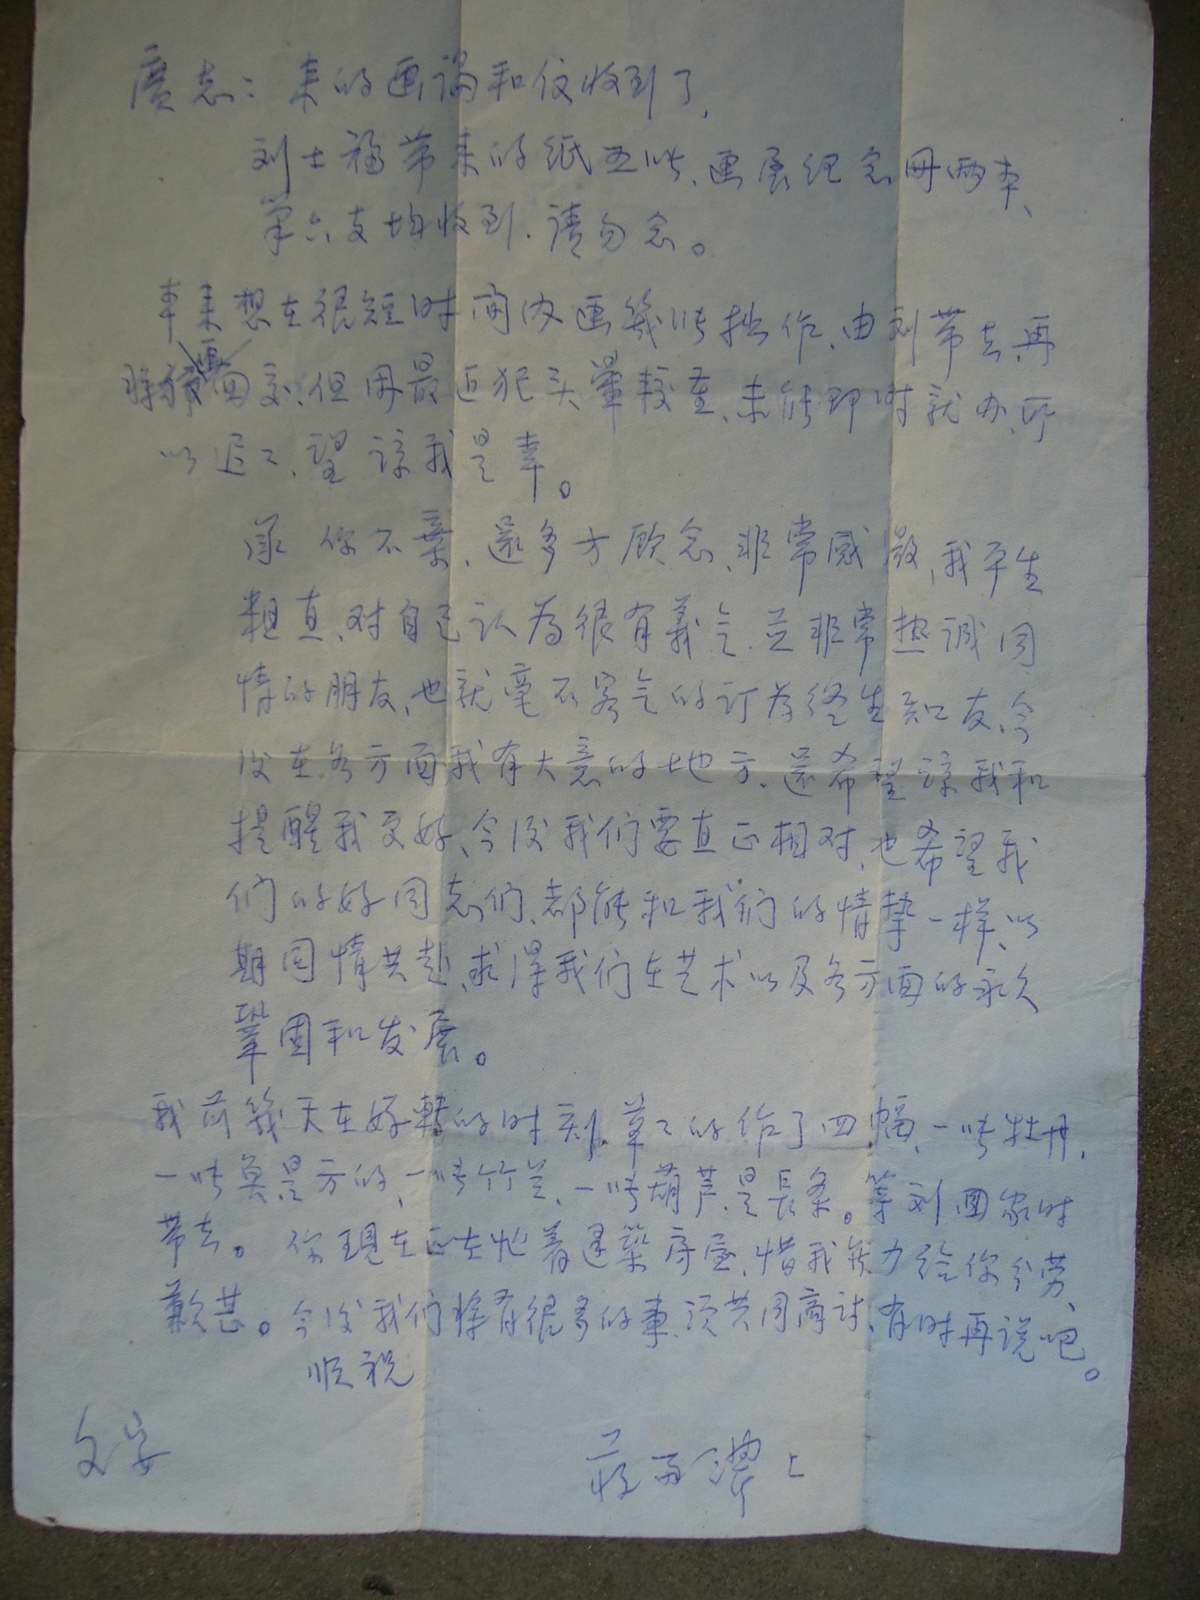 广志：来的画谒和仪收到了，
刘士福带来的纸五张、画展纪念册两本、
笔六支均收到．请勿念。
本来想在很短时间内画幾张拙作、由刘带去、再
面交、但因最近犯头晕較重、未能即时就办、所
以迟了、望諒我是幸。
承你不棄、還多方顾念、非常感激、我平生
粗直、对自己认为很有義气．并非常热诚同
情的朋友、也就毫不客气的订为终生知友、今
后在各方面我有大意的地方、還希望諒我和
提醒我更好、今后我们要直正相对、也希望我
们的好同志们、都能和我们的情挚一样、以
期同情共赴、求得我们在艺术以及各方面的永久
鞏固和发展。
我前幾天在好轉的时刻、草了的作了四幅、一张牡丹、
一张是方的、一张竹兰、一张葫芦是長条。等刘回家时
带去。你現在正在忙着建築房屋、惜我无力给你分劳、
歉甚。今后我们将有很多的事、须共同商討、有时再说吧。
順祝
文安
上